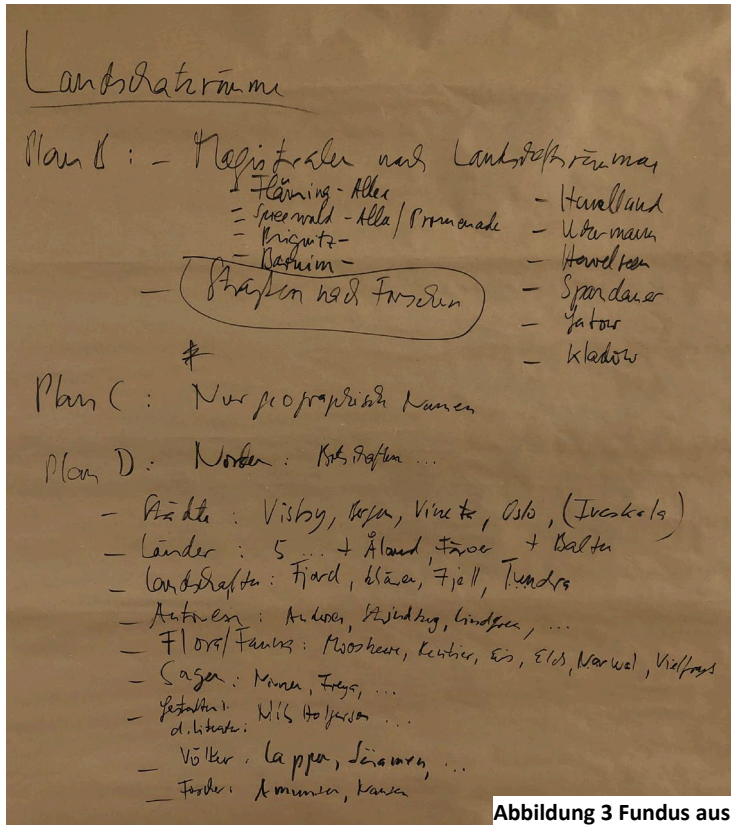 Landschaftsräume
Plan B : – Magistralen nach Landschaftsräumen
- Fläming - Allee
- Spreewald - Allee / Promenade
- Prignitz -
- Barnim -
- Havelland
- Uckermark
- Havelseen
- Spandauer
- Gatow
- Kladow
– Straßen nach Forschern
*
Plan C : Nur geographische Namen
Plan D : Norden : Botschaften ...
- Städte : Visby, Bergen, Vineta, Oslo, ( )
- Länder : 5 ... + Åland, Färöer + Balten
- Landschaften : Fjord, Schären, Fjell, Tundra
- Autoren : Andersen, Strindberg, Lindgren, ...
- Flora/Fauna : Moosbeere, Rentier, Eis, Elch, Narwal, Vielfrass
- Sagen : Nornen, Freya, ...
- Gestalten i.
d. Literatur : Nils Holgersson ...
- Völker : Lappen, ...
- Forscher : Amundsen, Nansen
Abbildung 3 Fundus aus